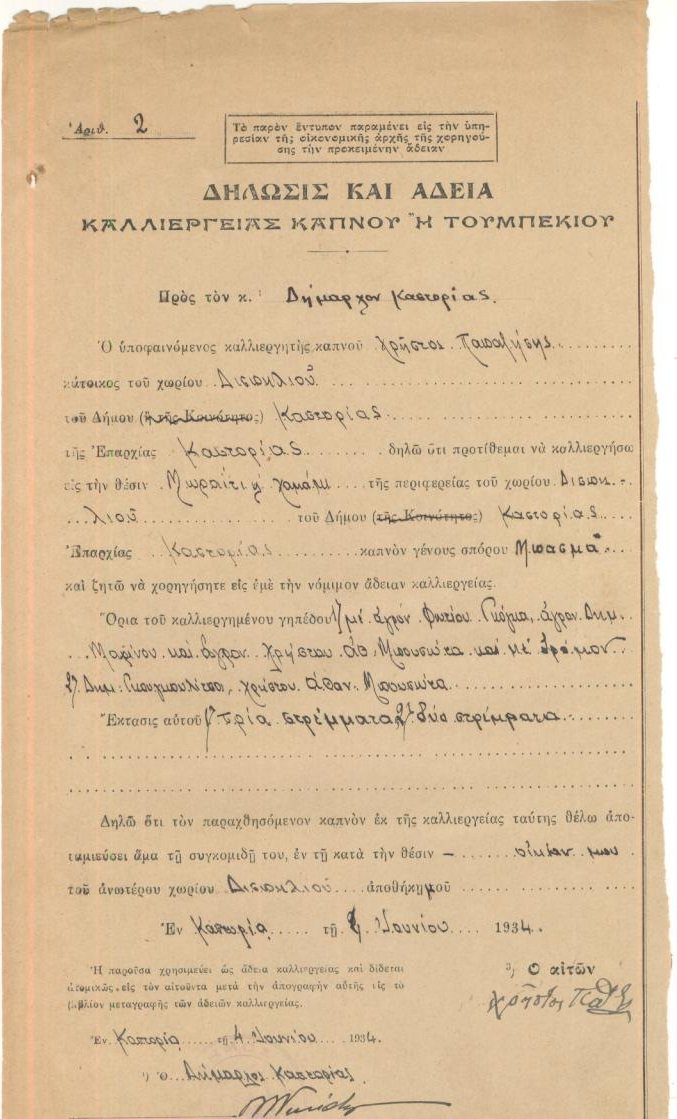 Ἀριθ. 2
Τὸ παρὸν ἔντυπον παραμένει εἰς τὴν ὑπη-
ρεσίαν τῆς οἰκονομικῆς ἀρχῆς τῆς χορηγού-
σης τὴν προκειμένην ἄδειαν
ΔΗΛΩΣΙΣ ΚΑΙ ΑΔΕΙΑ
ΚΑΛΛΙΕΡΓΕΙΑΣ ΚΑΠΝΟΥ Ἢ ΤΟΥΜΠΕΚΙΟΥ
Πρὸς τὸν κ. Δήμαρχον Καστορίας.
Ὁ ὑποφαινόμενος καλλιεργητὴς καπνοῦ Χρῆστος
κάτοικος τοῦ χωρίου Δισπηλιοῦ
τοῦ Δήμου (ἢ τῆς Κοινότητος) Καστορίας
τῆς Ἐπαρχίας Καστορίας δηλῶ ὅτι προτίθεμαι νὰ καλλιεργήσω
εἰς τὴν θέσιν τῆς περιφερείας τοῦ χωρίου Δισπη-
λιοῦ τοῦ Δήμου (τῆς Κοινότητος) Καστορίας
Ἐπαρχίας Καστορίας καπνὸν γένους σπόρου Μπασμᾶ
καὶ ζητῶ νὰ χορηγήσητε εἰς ἐμὲ τὴν νόμιμον ἄδειαν καλλιεργείας.
Ὅρια τοῦ καλλιεργημένου γηπέδου 1) μὲ ἀγρόν Φωτίου Γκόγκα, ἀγρον Δημ.
Μαρίνου καὶ ἀγρον Χρήστου Ἀθ. Μπουσιώτα καὶ μὲ δρόμον
2) Δημ. Χρήστου Ἀθαν. Μπουσιώτα
Ἔκτασις αὐτοῦ 1) τρία στρέμματα 2) δύο στρέμματα
Δηλῶ ὅτι τὸν παραχθησόμενον καπνὸν ἐκ τῆς καλλιεργείας ταύτης θέλω ἀπο-
ταμιεύσει ἅμα τῇ συγκομιδῇ του, ἐν τῇ κατὰ τὴν θέσιν – οἰκίαν μου
τοῦ ἀνωτέρου χωρίου Δισπηλιοῦ ἀποθήκῃ μοῦ
Ἐν Καστορίᾳ τῇ Ἰουνίου 1934.
Ἡ παροῦσα χρησιμεύει ὡς ἄδεια καλλιεργείας καὶ δίδεται
ἀτομικῶς εἰς τὸν αἰτοῦντα μετὰ τὴν ἀπογραφὴν αὐτῆς εἰς τὸ
βιβλίον μεταγραφῆς τῶν ἀδειῶν καλλιεργείας.
Ὁ αἰτῶν
Χρῆστος
Ἐν Καστορίᾳ τῇ 4 Ἰουνίου 1934.
Ὁ Δήμαρχος Καστορίας